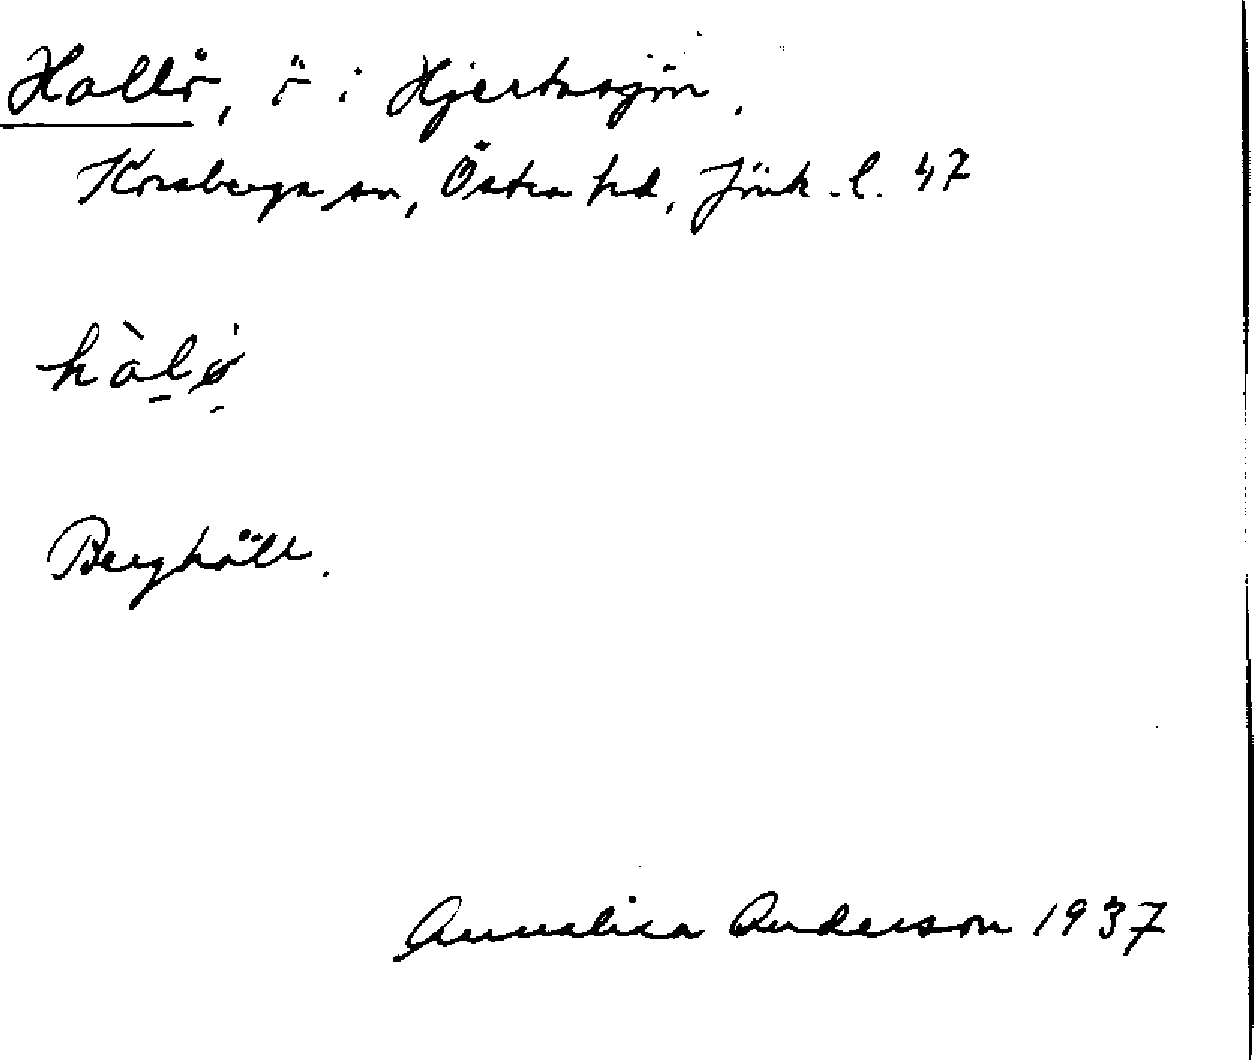 Hallö, ö i Hjertasjön.
Korsberga sn, Östra hd, Jönk. l. 47
hàlø
Berghäll.
Annalisa Anderson 1937